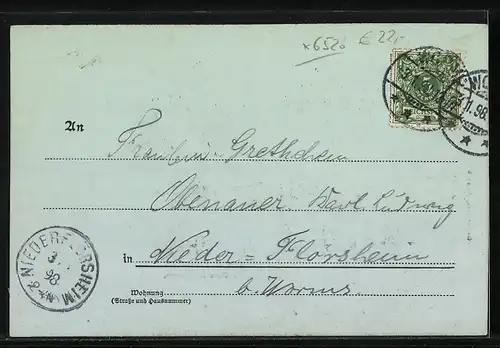 *6520 € 22,-
WO
11.98.
An
Fräulein Grethchen
Obenauer Karl Ludwig
in Nieder-Flörsheim
b. Worms
Wohnung
(Straße und Hausnummer)
NIEDERFLÖRSHEIM
98